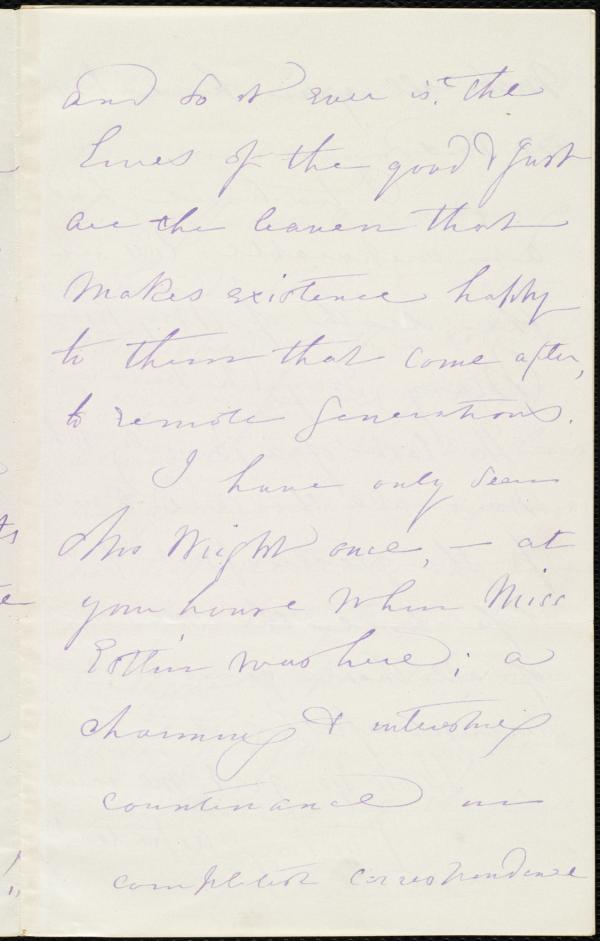 and so it ever is. The
lives of the good & just
are the leaven that
makes existence happy
to them that come after,
to remote generations.
I have only seen
Mrs Wright once, – at
your house when Miss
Estlin was here; a
charming & interesting
countenance in
completest correspondence